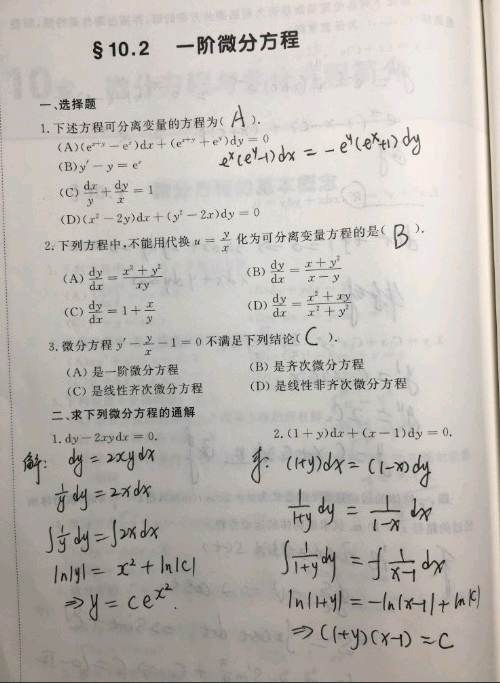 §10.2 一阶微分方程
一、选择题
1. 下述方程可分离变量的方程为( A ).
(A) (e^{x+y} − e^x)dx + (e^{x+y} + e^y)dy = 0
e^x(e^y−1)dx = −e^y(e^x+1)dy
(B) y′ − y = e^x
(C) dx/y + dy/x = 1
(D) (x² − 2y)dx + (y² − 2x)dy = 0
2. 下列方程中,不能用代换 u = y/x 化为可分离变量方程的是( B ).
(A) dy/dx = (x² + y²)/(xy) (B) dy/dx = (x + y²)/(x − y)
(C) dy/dx = 1 + x/y (D) dy/dx = (x² + xy)/(x² + y²)
3. 微分方程 y′ − y/x − 1 = 0 不满足下列结论( C ).
(A) 是一阶微分方程 (B) 是齐次微分方程
(C) 是线性齐次微分方程 (D) 是线性非齐次微分方程
二、求下列微分方程的通解
1. dy − 2xydx = 0.
解: dy = 2xydx
1/y dy = 2xdx
∫ 1/y dy = ∫2xdx
ln|y| = x² + ln|c|
⇒ y = ce^{x²}.
2. (1 + y)dx + (x − 1)dy = 0.
(1+y)dx = (1−x)dy
1/(1+y) dy = 1/(1−x) dx
∫ 1/(1+y) dy = −∫ 1/(x−1) dx
ln|1+y| = −ln|x−1| + ln|c|
⇒ (1+y)(x−1) = C